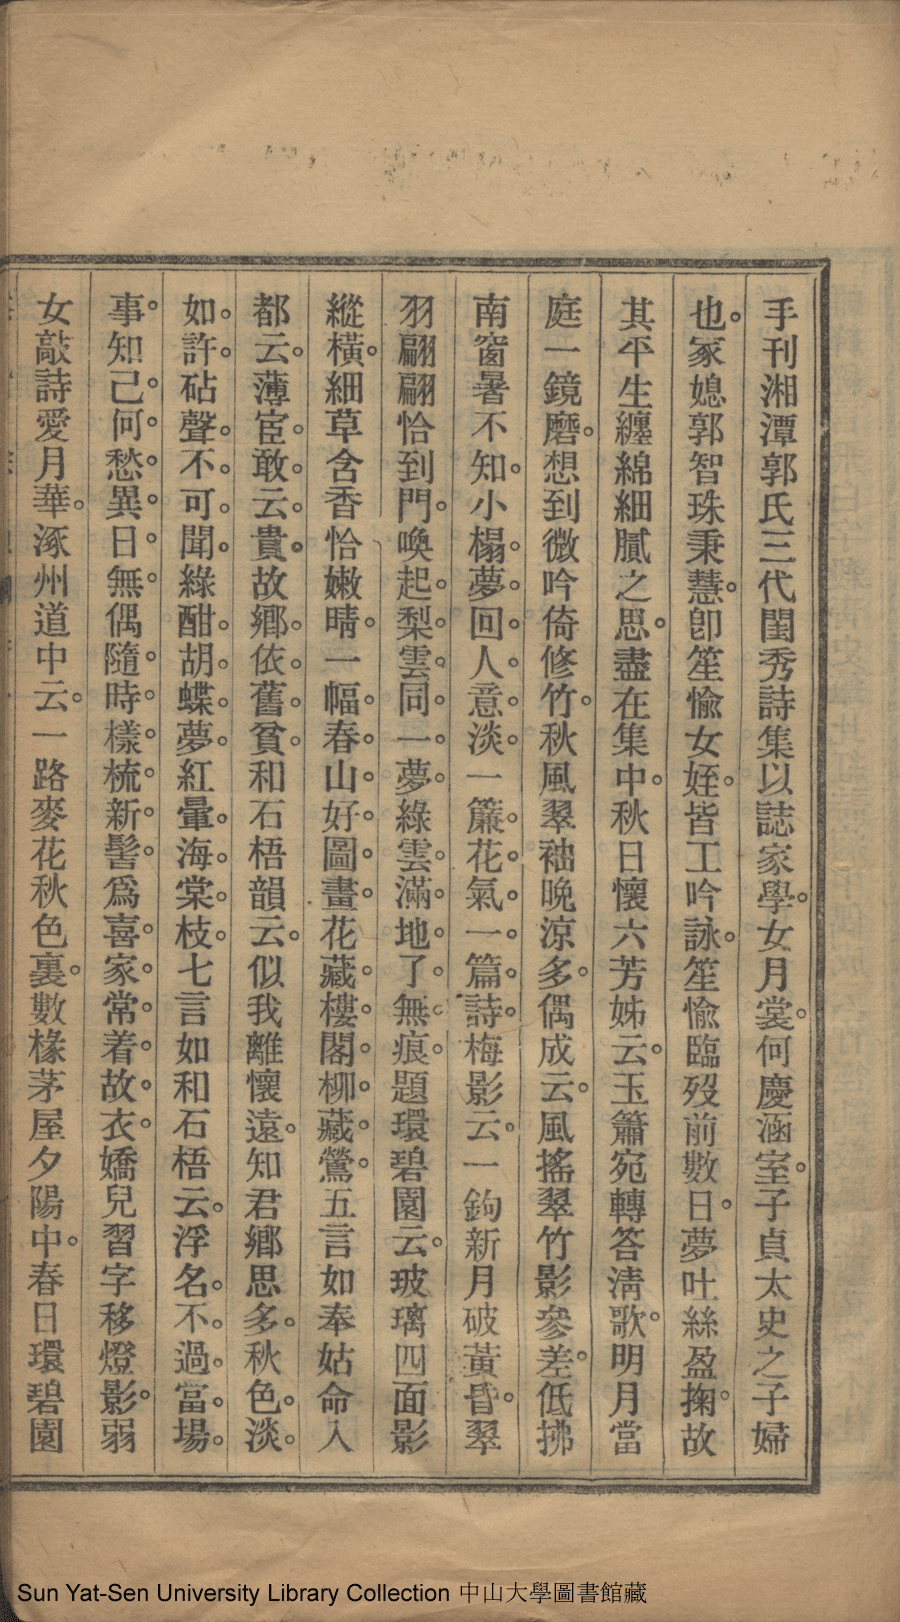 手刊湘潭郭氏三代閨秀詩集以誌家學。女月裳。何慶涵室。子貞太史之子婦
也。冢媳郭智珠秉慧。卽笙愉女姪。皆工吟詠。笙愉臨歿前數日。夢吐絲盈掬。故
其平生纏綿細膩之思。盡在集中。秋日懷六芳姊云。玉簫宛轉答淸歌。明月當
庭一鏡磨。想到微吟倚修竹。秋風翠袖晩涼多。偶成云。風搖翠竹影參差。低拂
南窗暑不知。小榻。夢。回。人。意。淡。一簾。花。氣。一。篇。詩。梅影云。一鉤新月破黃昏。翠
羽翩翩恰到門。喚起。梨。雲。同。一。夢。綠雲。滿。地。了。無。痕。題環碧園云。玻璃四面影
縱橫。細草含香恰嫩晴。一幅。春。山。好。圖。畫。花藏。樓。閣。柳。藏。鶯。五言如奉姑命入
都云。薄宦。敢云。貴。故鄉。依。舊。貧。和石梧韻云。似我離懷遠。知君鄉思多。秋色。淡。
如。許。砧聲。不。可。聞。綠酣。胡。蝶。夢。紅暈。海。棠。枝。七言如和石梧云。浮名。不。過。當。場。
事。知己。何。愁。異。日。無。偶隨。時。樣。梳。新。髻。爲喜。家。常。着。故。衣。嬌兒習字移燈影。弱
女敲詩愛月華。涿州道中云。一路麥花秋色裏。數椽茅屋夕陽中。春日環碧園
Sun Yat-Sen University Library Collection 中山大學圖書館藏